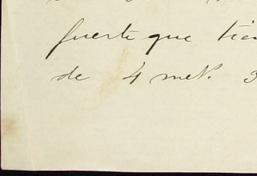 fuerte que tien
de 4 met. 3